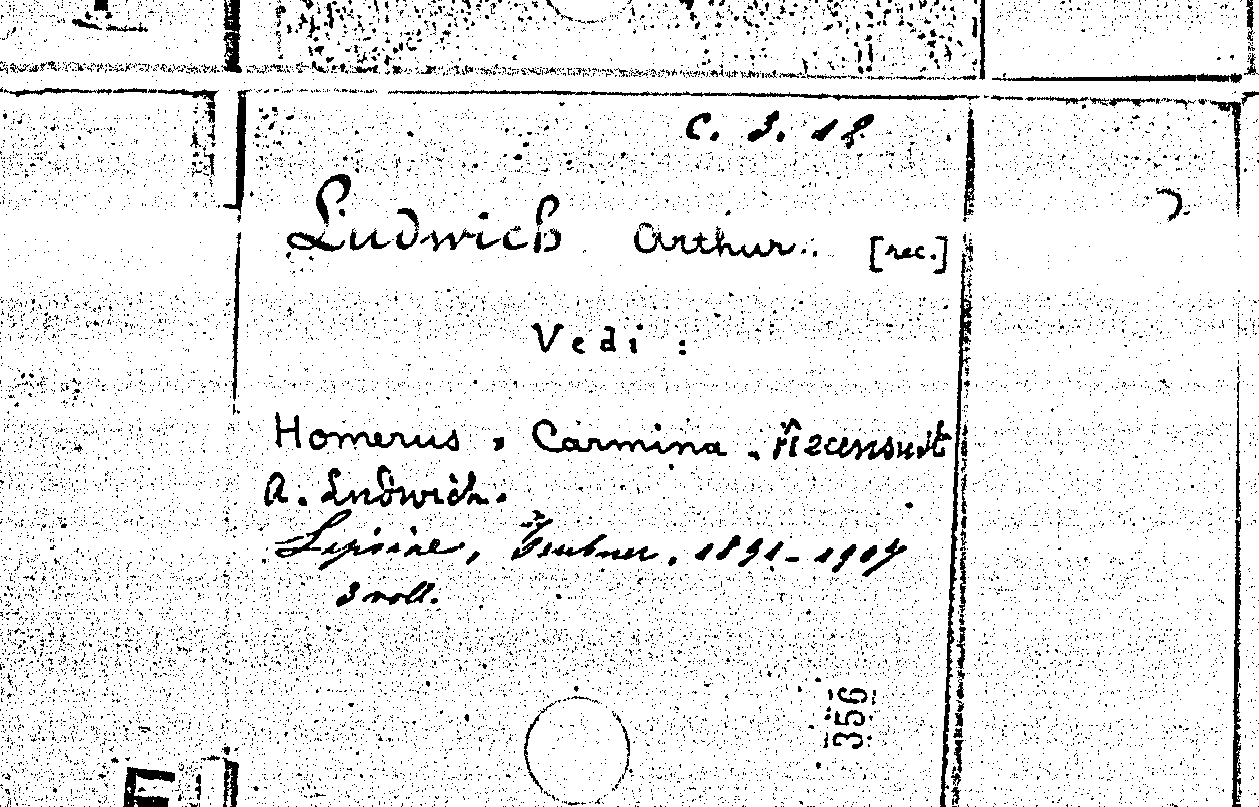 C. 3. 18
Ludwich Arthur. [rec.]
Vedi :
Homerus, Carmina. Recensuit
A. Ludwich.
Lipsiae, Teubner, 1891-1907
3 voll.
356